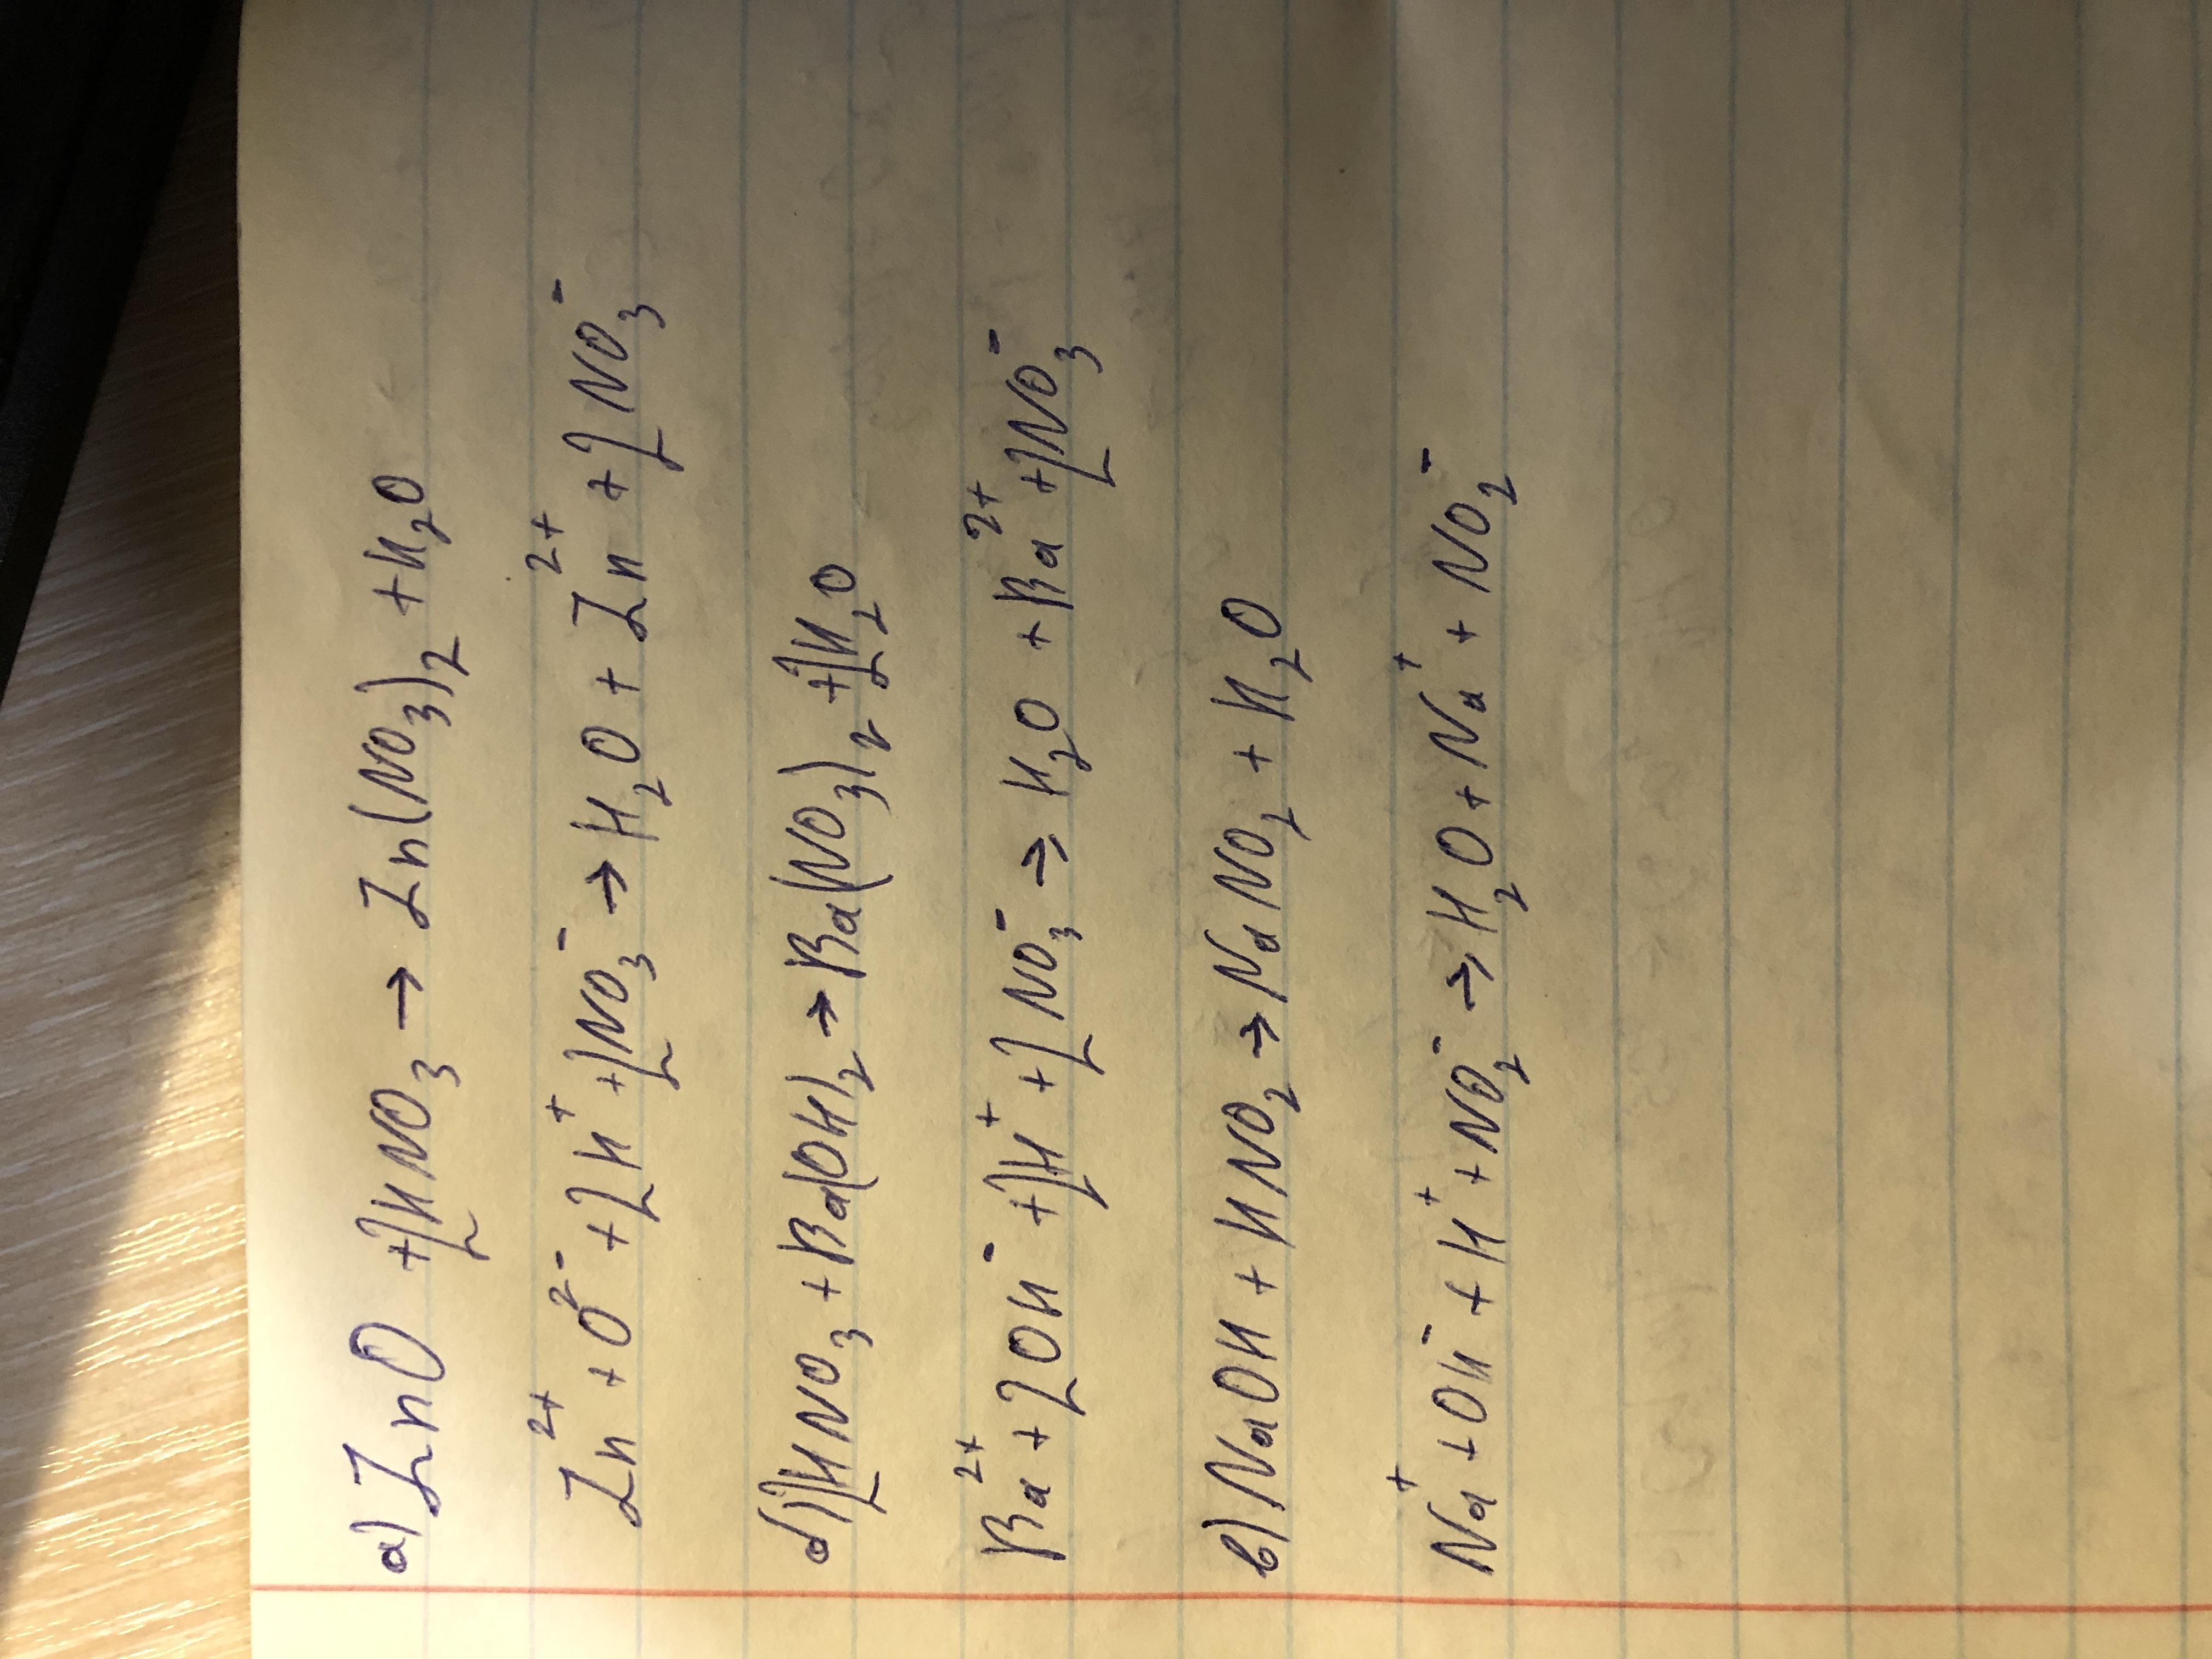 а) ZnO + 2HNO₃ → Zn(NO₃)₂ + H₂O
Zn²⁺ + O²⁻ + 2H⁺ + 2NO₃⁻ → H₂O + Zn²⁺ + 2NO₃⁻
б) 2HNO₃ + Ba(OH)₂ → Ba(NO₃)₂ + 2H₂O
Ba²⁺ + 2OH⁻ + 2H⁺ + 2NO₃⁻ → H₂O + Ba²⁺ + 2NO₃⁻
в) NaOH + HNO₂ → NaNO₂ + H₂O
Na⁺ + OH⁻ + H⁺ + NO₂⁻ → H₂O + Na⁺ + NO₂⁻